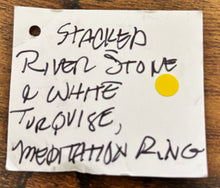 STACKED
RIVER STONE
& WHITE
TURQUISE,
MEDITATION RING